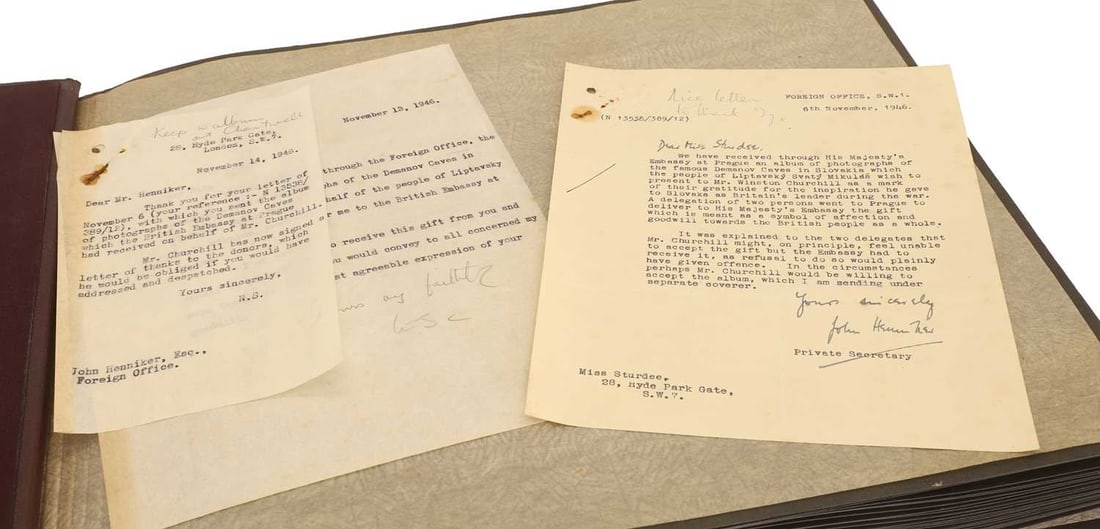 Keep album
and Chartwell
28, Hyde Park Gate,
London, S.W.7.
November 14, 1946.
Dear Mr. Henniker,
Thank you for your letter of
November 6 (your reference:- N 13538/
389/12), with which you sent the album
of photographs of the Demanov Caves
which the British Embassy at Prague
had received on behalf of Mr. Churchill.
Mr. Churchill has now signed
letter of thanks to the donors, which
he would be obliged if you would have
addressed and despatched.
Yours sincerely,
N.S.
John Henniker, Esq.,
Foreign Office.
November 13, 1946.
through the Foreign Office, the
of the Demanov Caves in
half of the people of Liptavsky
me to the British Embassy at
o receive this gift from you and
ou would convey to all concerned my
st agreeable expression of your
faith
WSC
Nice letter
to thank
FOREIGN OFFICE, S.W.1.
6th November, 1946.
(N 13538/389/12)
Dear Miss Sturdee,
We have received through His Majesty's
Embassy at Prague an album of photographs of
the famous Demanov Caves in Slovakia which
the people of Liptavský Svatý Mikuláš wish to
present to Mr. Winston Churchill as a mark
of their gratitude for the inspiration he gave
to Slovaks as Britain's leader during the war.
A delegation of two persons went to Prague to
deliver to His Majesty's Embassy the gift
which is meant as a symbol of affection and
goodwill towards the British people as a whole.
It was explained to the two delegates that
Mr. Churchill might, on principle, feel unable
to accept the gift but the Embassy had to
receive it, as refusal to do so would plainly
have given offence. In the circumstances
perhaps Mr. Churchill would be willing to
accept the album, which I am sending under
separate coverer.
Yours sincerely
John Henniker
Private Secretary
Miss Sturdee,
28, Hyde Park Gate,
S.W.7.